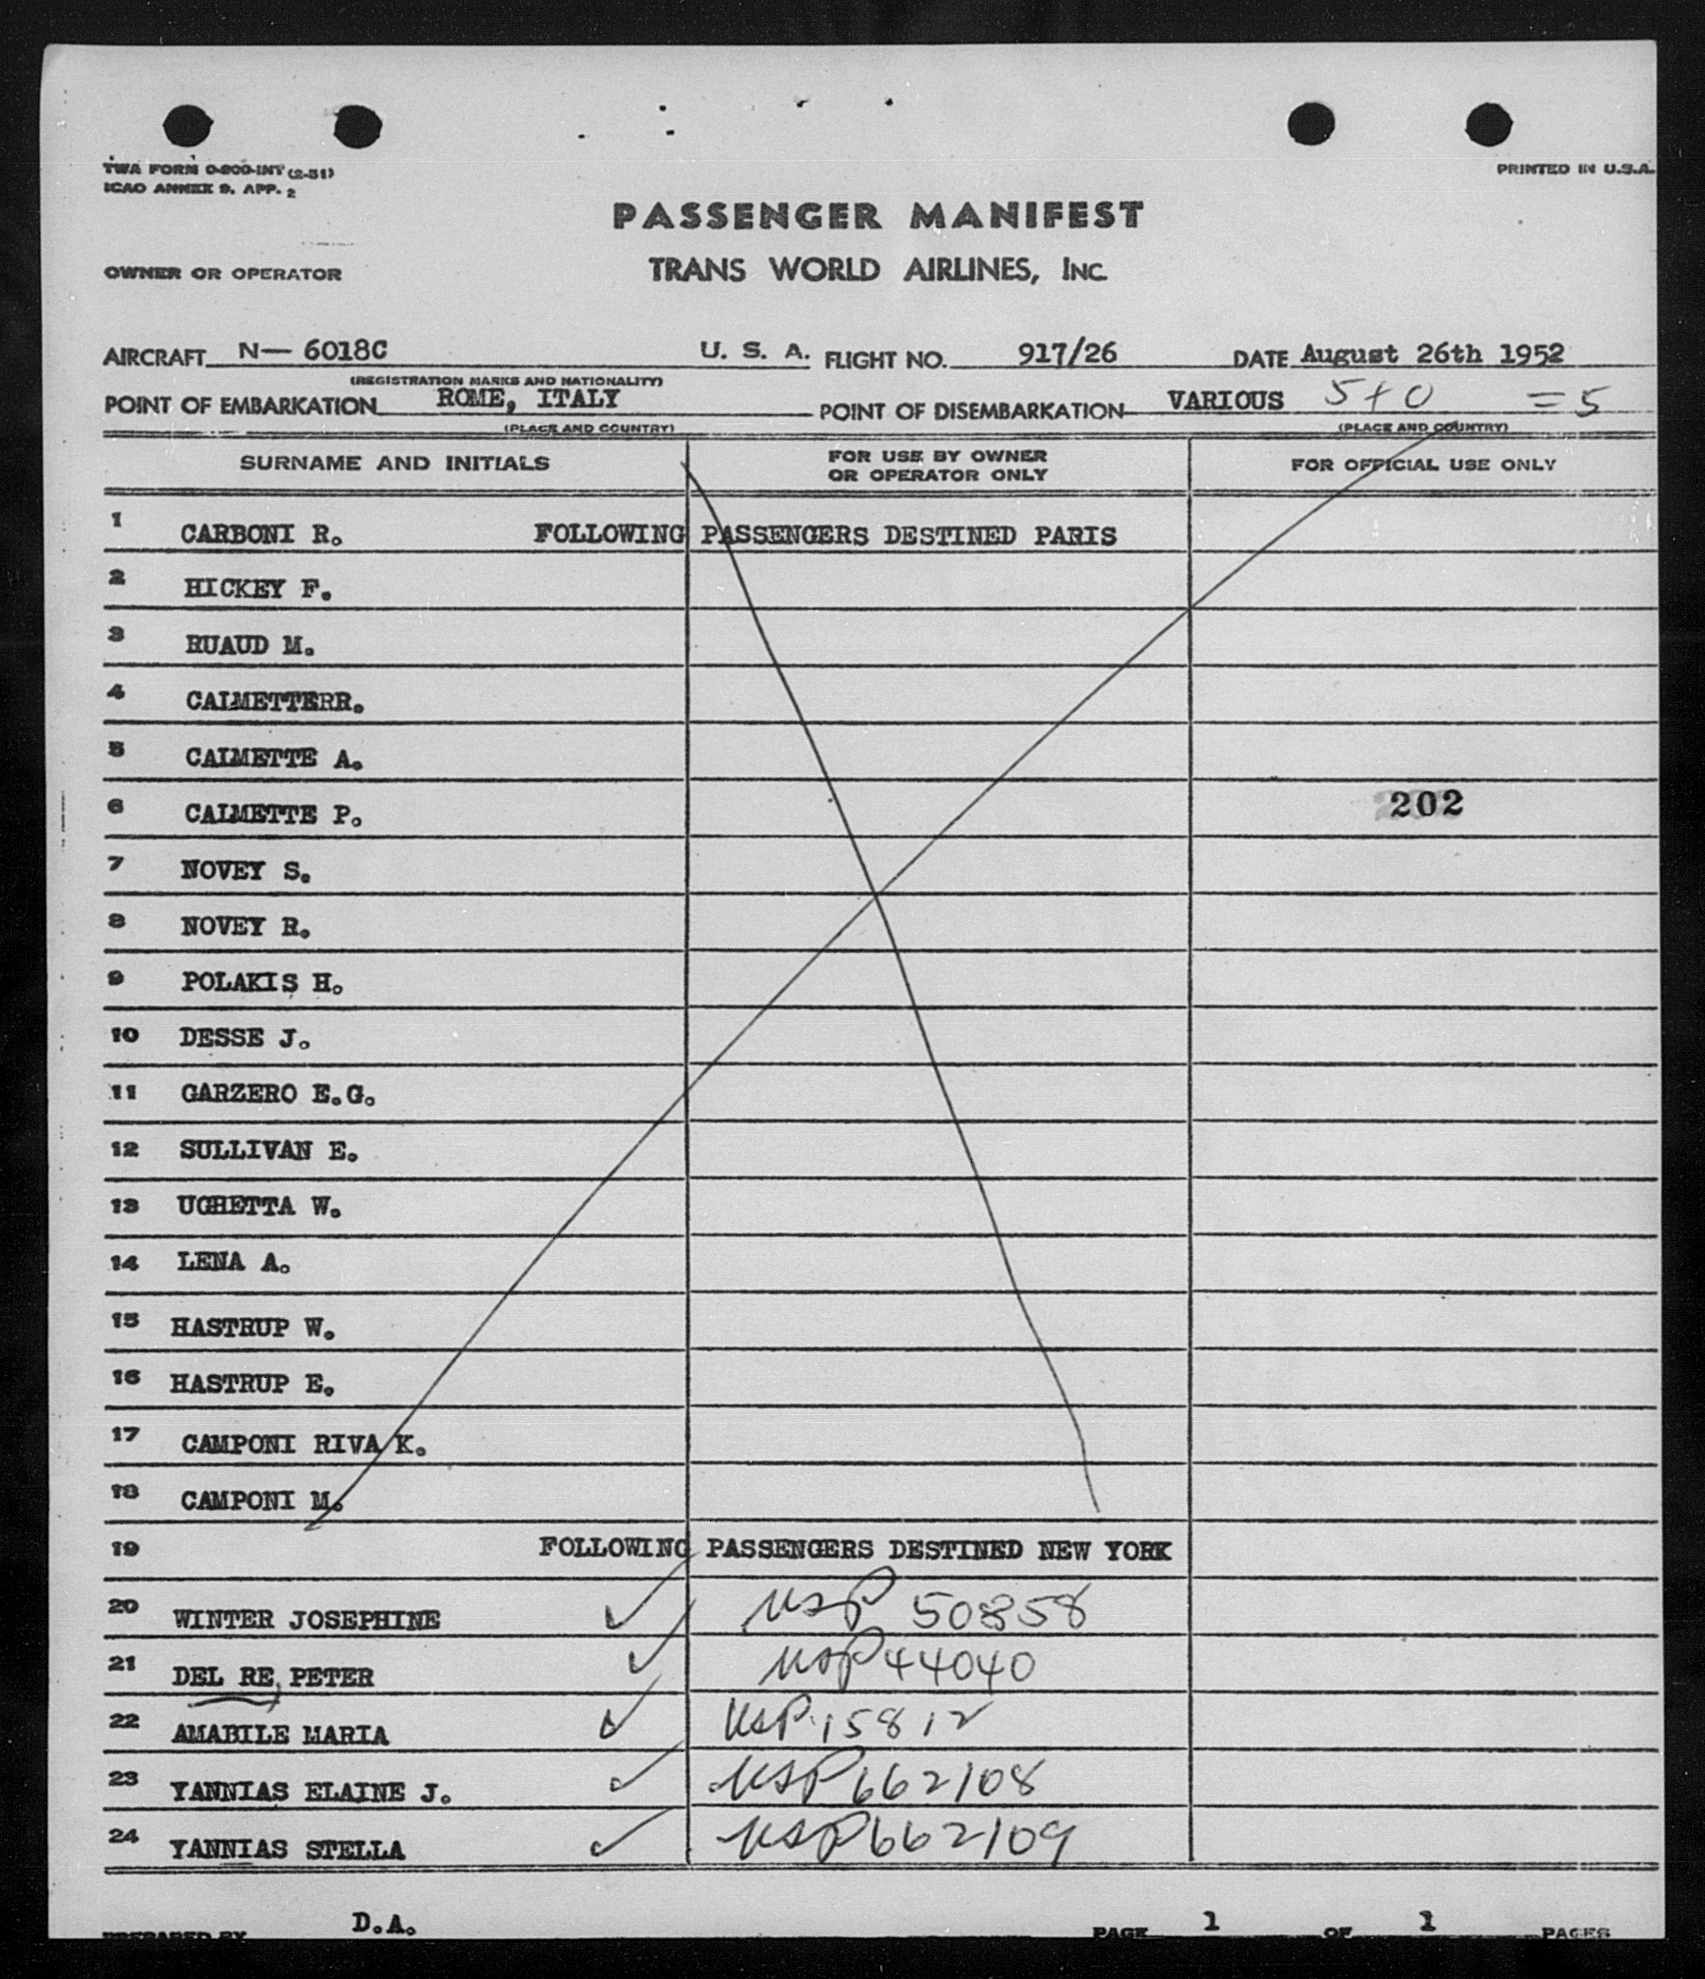 TWA FORM O-800-INT (2-51)
ICAO ANNEX 9. APP. 2
PRINTED IN U.S.A.
PASSENGER MANIFEST
OWNER OR OPERATOR
TRANS WORLD AIRLINES, INC
AIRCRAFT N— 6018C U. S. A. FLIGHT NO. 917/26 DATE August 26th 1952
(REGISTRATION MARKS AND NATIONALITY)
POINT OF EMBARKATION ROME, ITALY POINT OF DISEMBARKATION VARIOUS 5+0 =5
(PLACE AND COUNTRY) (PLACE AND COUNTRY)
SURNAME AND INITIALS FOR USE BY OWNER OR OPERATOR ONLY FOR OFFICIAL USE ONLY
1 CARBONI R. FOLLOWING PASSENGERS DESTINED PARIS
2 HICKEY F.
3 RUAUD M.
4 CALMETTERR.
5 CALMETTE A.
6 CALMETTE P. 202
7 NOVEY S.
8 NOVEY R.
9 POLAKIS H.
10 DESSE J.
11 GARZERO E.G.
12 SULLIVAN E.
13 UGHETTA W.
14 LENA A.
15 HASTRUP W.
16 HASTRUP E.
17 CAMPONI RIVA K.
18 CAMPONI M.
19 FOLLOWING PASSENGERS DESTINED NEW YORK
20 WINTER JOSEPHINE ✓ USP 50858
21 DEL RE, PETER ✓ USP 44040
22 AMABILE MARIA ✓ USP 15812
23 YANNIAS ELAINE J. ✓ USP 662108
24 YANNIAS STELLA ✓ USP 662109
PREPARED BY D.A. PAGE 1 OF 1 PAGES